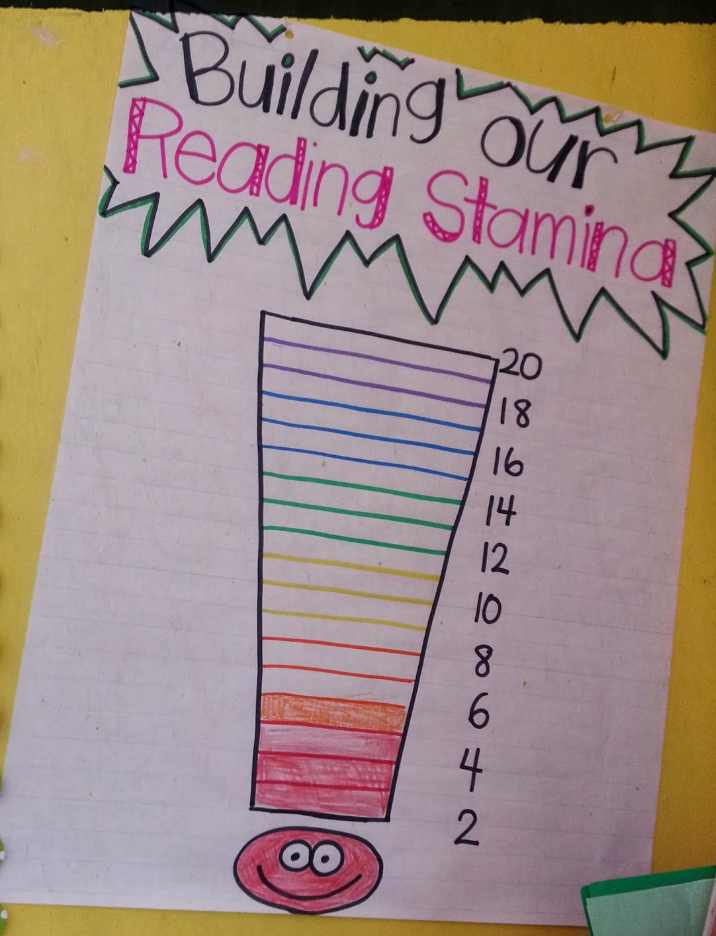 Building our
Reading Stamina
20
18
16
14
12
10
8
6
4
2